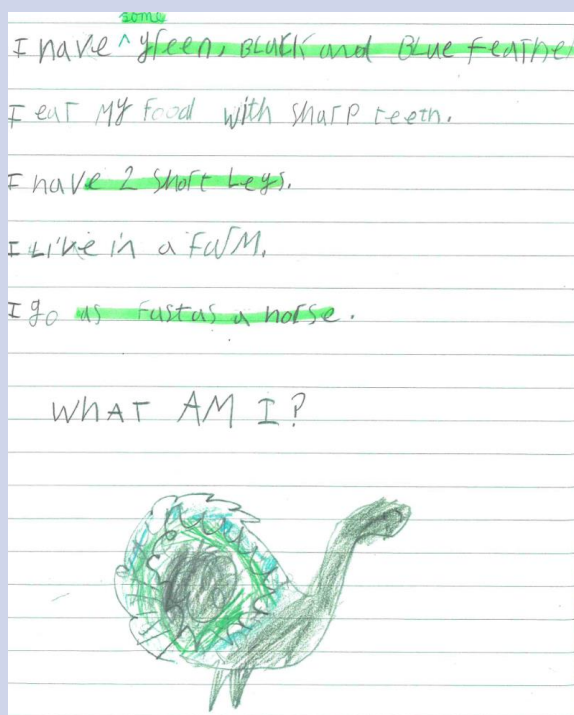 some
I have ^ green, BLack and BLue feathe
I eat MY food with sharp teeth.
I have 2 short Legs.
I Live in a faRM.
I go as fast as a horse.
WhAT AM I?